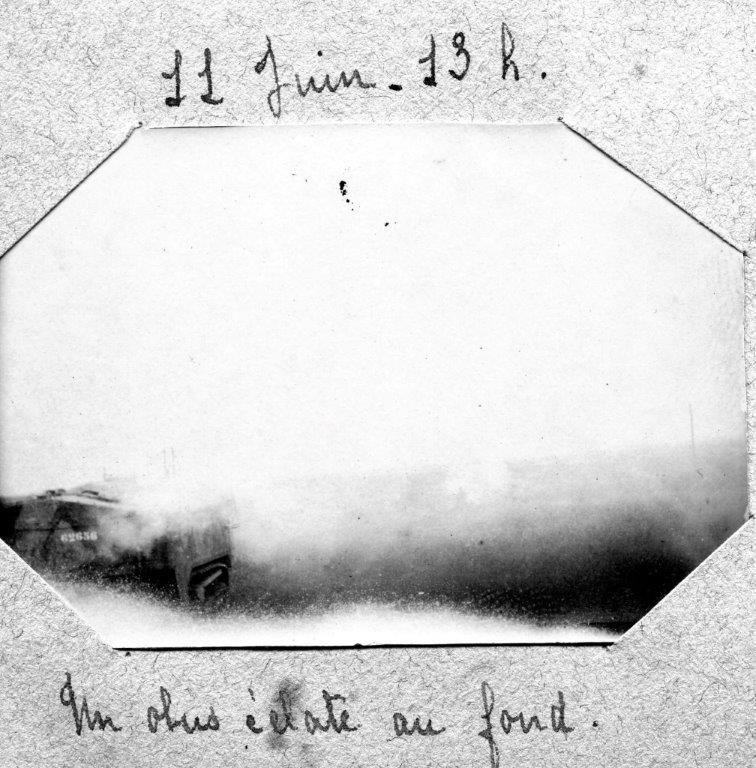 11 Juin - 13 h.
62656
Un obus éclate au fond.